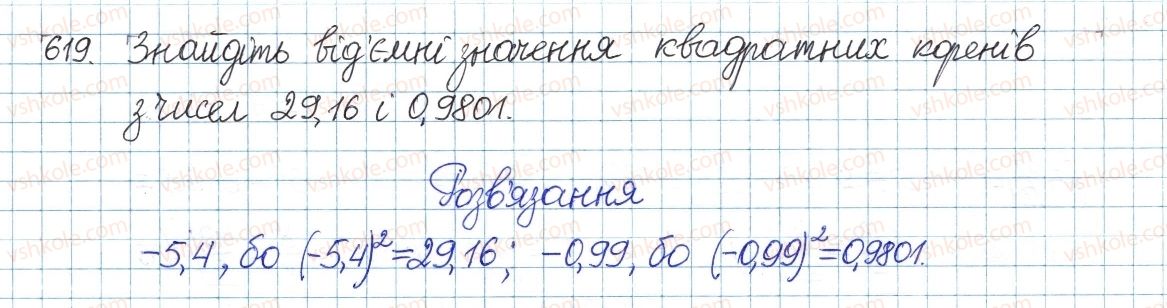 619. Знайдіть від'ємні значення квадратних коренів
з чисел 29,16 і 0,9801.
Розв'язання
-5,4, бо (-5,4)²=29,16; -0,99, бо (-0,99)²=0,9801.